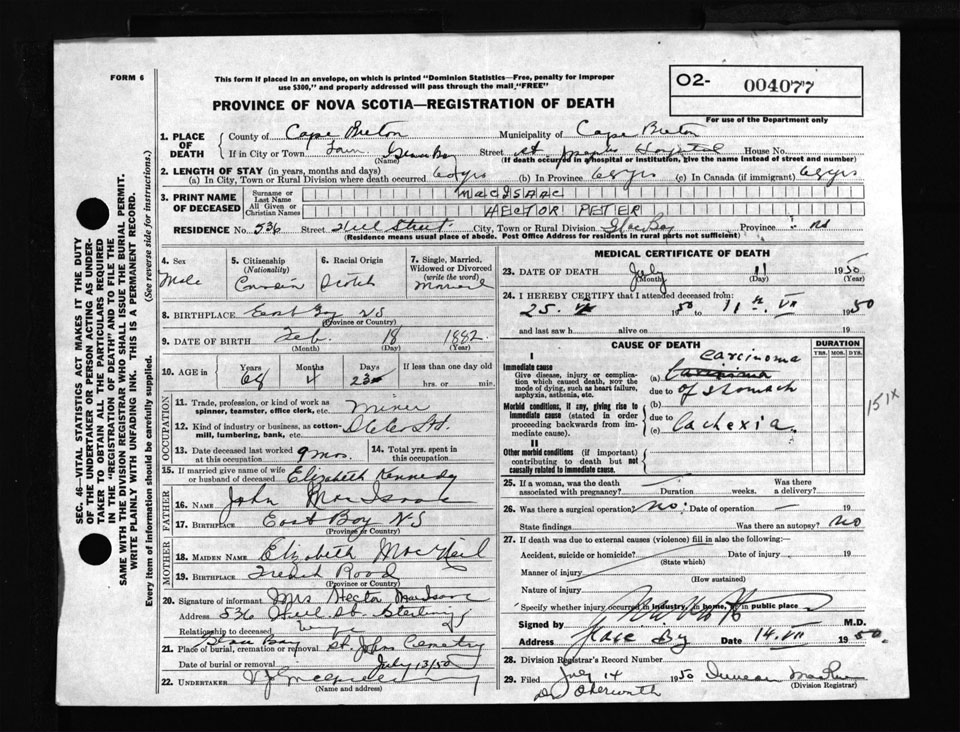 FORM 6
This form if placed in an envelope, on which is printed "Dominion Statistics—Free, penalty for improper
use $300," and properly addressed will pass through the mail "FREE"
O2- 004077
For use of the Department only
PROVINCE OF NOVA SCOTIA—REGISTRATION OF DEATH
SEC. 46—VITAL STATISTICS ACT MAKES IT THE DUTY
OF THE UNDERTAKER OR PERSON ACTING AS UNDER-
TAKER TO OBTAIN ALL THE PARTICULARS REQUIRED
IN THE "REGISTRATION OF DEATH" AND TO FILE THE
SAME WITH THE DIVISION REGISTRAR WHO SHALL ISSUE THE BURIAL PERMIT.
WRITE PLAINLY WITH UNFADING INK. THIS IS A PERMANENT RECORD.
Every item of information should be carefully supplied. (See reverse side for instructions.)
1. PLACE OF DEATH
County of Cape Breton Municipality of Cape Breton
If in City or Town Town Glace Bay Street St Josephs Hospital House No.
(Name) (If death occurred in a hospital or institution, give the name instead of street and number)
2. LENGTH OF STAY (in years, months and days)
(a) In City, Town or Rural Division where death occurred (b) In Province 68 yrs (c) In Canada (if immigrant) 68 yrs
3. PRINT NAME OF DECEASED
Surname or Last Name MACISAAC
All Given or Christian Names HECTOR PETER
RESIDENCE No. 536 Street Steel Street City, Town or Rural Division Glace Bay Province NS
(Residence means usual place of abode. Post Office Address for residents in rural parts not sufficient)
4. Sex Male
5. Citizenship (Nationality)
6. Racial Origin Scotch
7. Single, Married, Widowed or Divorced (write the word) Married
8. BIRTHPLACE East Bay NS
(Province or Country)
9. DATE OF BIRTH Feb. 18 1882
(Month) (Day) (Year)
10. AGE in Years 68 Months 4 Days 23 If less than one day old
hrs. or min.
OCCUPATION
11. Trade, profession, or kind of work as
spinner, teamster, office clerk, etc. Miner
12. Kind of industry or business, as cotton-
mill, lumbering, bank, etc.
13. Date deceased last worked at this occupation 9 mos.
14. Total yrs. spent in this occupation
15. If married give name of wife
or husband of deceased Elizabeth Kennedy
FATHER
16. NAME John MacIsaac
17. BIRTHPLACE East Bay NS
(Province or Country)
MOTHER
18. MAIDEN NAME Elizabeth MacNeil
19. BIRTHPLACE French Road
(Province or Country)
20. Signature of informant Mrs Hector MacIsaac
Address 536 Steel St. Sterling
Relationship to deceased Wife
Glace Bay
21. Place of burial, cremation or removal St. Johns Cemetry
Date of burial or removal July 13/50
22. UNDERTAKER
(Name and address)
MEDICAL CERTIFICATE OF DEATH
23. DATE OF DEATH July 11 1950
(Month) (Day) (Year)
24. I HEREBY CERTIFY that I attended deceased from:
25. 1950 to 11th. VII 1950
and last saw h alive on 19
CAUSE OF DEATH DURATION
YRS. MOS. DYS.
I
Immediate cause
Give disease, injury or complication which caused death, NOT the mode of dying, such as heart failure, asphyxia, asthenia, etc.
carcinoma
(a)
due to of stomach
Morbid conditions, if any, giving rise to immediate cause (stated in order proceeding backwards from immediate cause).
(b)
due to
(c) Cachexia.
151X
II
Other morbid conditions (if important) contributing to death but not causally related to immediate cause.
25. If a woman, was the death
associated with pregnancy? Duration weeks. Was there a delivery?
26. Was there a surgical operation? No. Date of operation — 19
State findings Was there an autopsy? no
27. If death was due to external causes (violence) fill in also the following:
Accident, suicide or homicide? Date of injury 19
(State which)
Manner of injury
(How sustained)
Nature of injury
Specify whether injury occurred in industry, in home, or in public place
Signed by M.D.
Address Glace Bay Date 14. VII 1950.
28. Division Registrar's Record Number
29. Filed July 14 1950 Duncan
(Division Registrar)